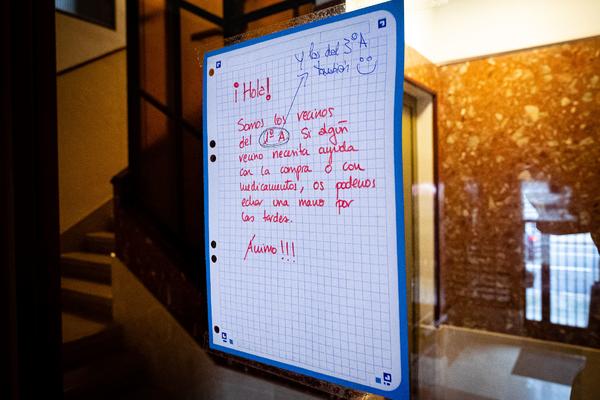 Y los del 3º A
también
¡Hola!
Somos los vecinos
del 1º A. Si algún
vecino necesita ayuda
con la compra o con
medicamentos, os podemos
echar una mano por
las tardes.
Ánimo!!!